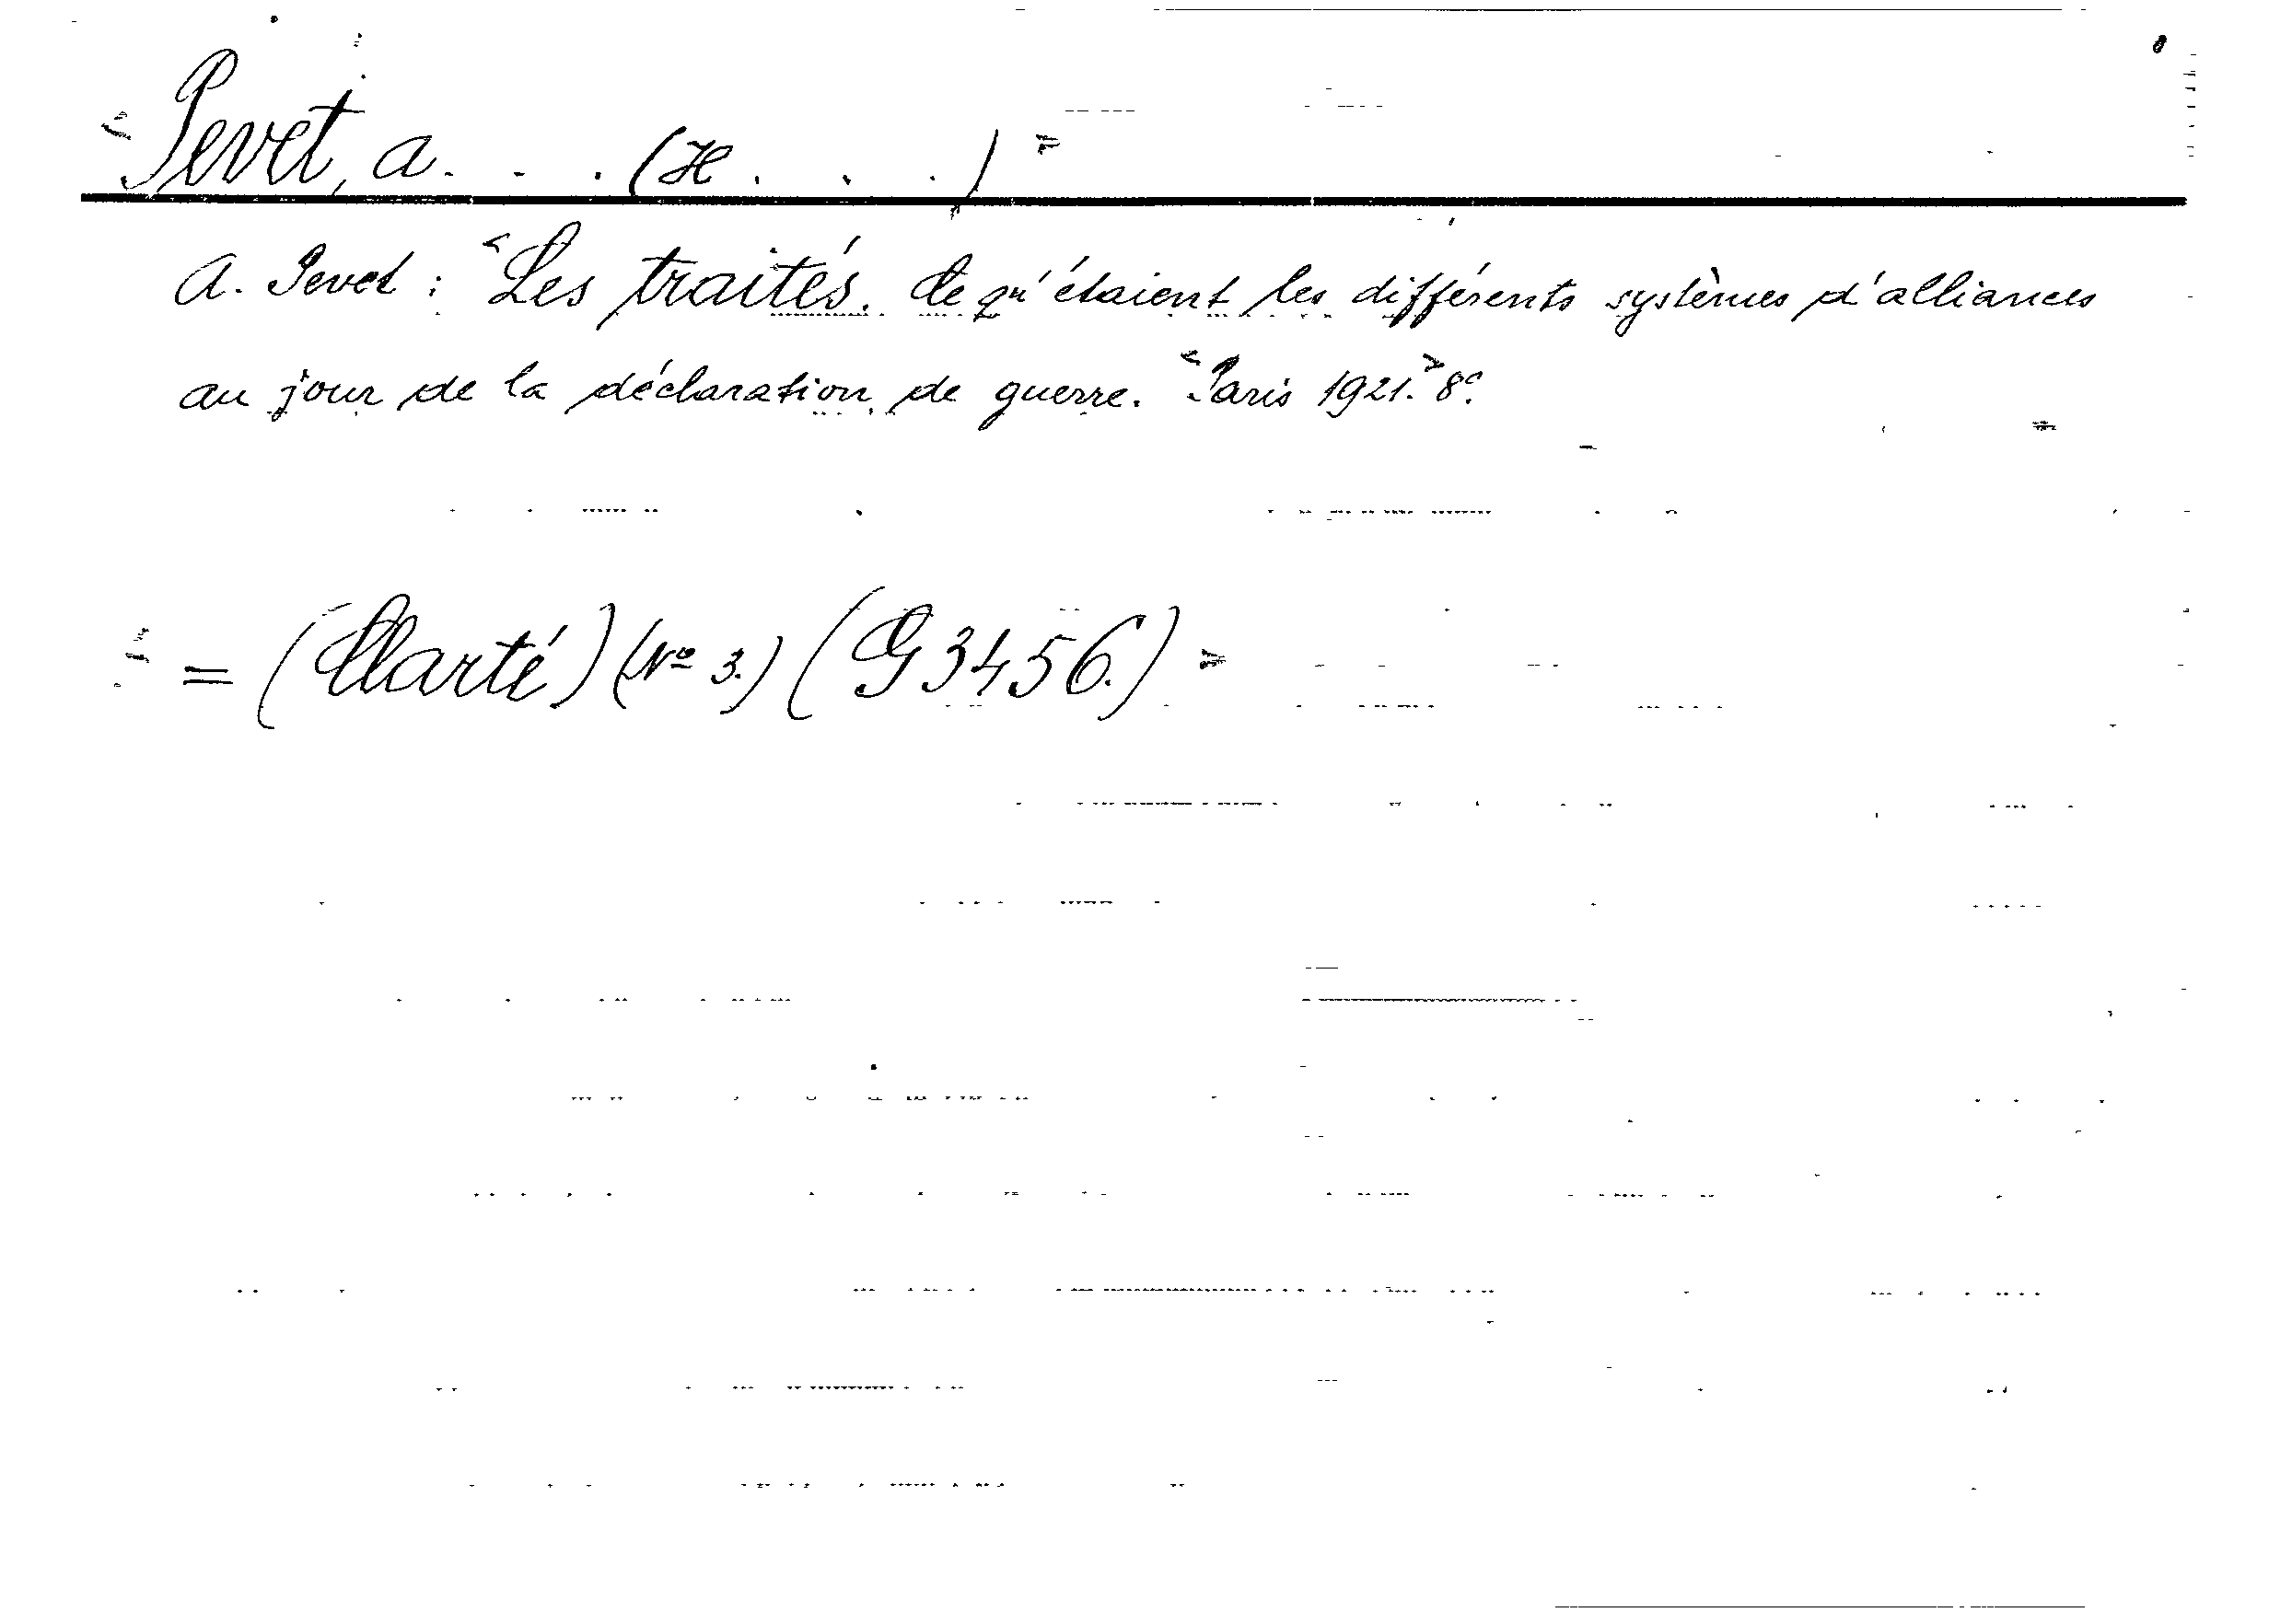 Pevet, A. . . (H . . .)
A. Pevet : "Les traités. Ce qu'étaient les différents systèmes d'alliances
au jour de la déclaration de guerre. "Paris 1921." 8°.
= (Clarté) (No 3.) (G 3456.)